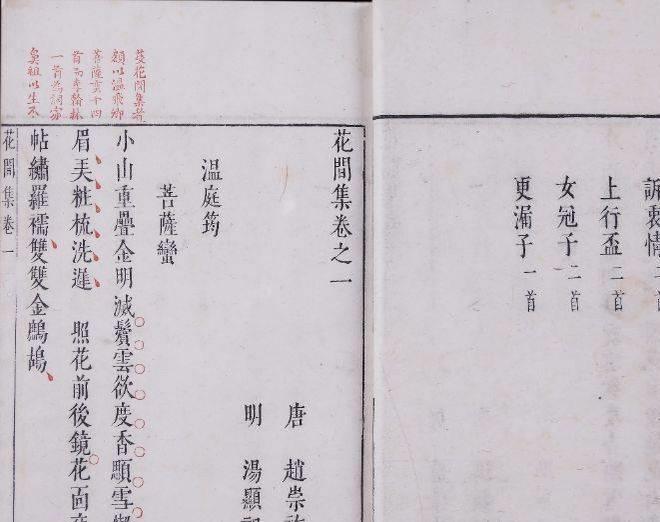 訴衷情
上行盃 二首
女冠子 二首
更漏子 一首
花間集卷之一
唐 趙崇
明 湯顯
溫庭筠
菩薩蠻
小山重疊金明滅鬢雲欲度香顋雪
眉弄粧梳洗遲 照花前後鏡花面
帖繡羅襦雙雙金鷓鴣
花間集卷一
芟花間集者
額以溫飛卿
菩薩蠻十四
首而李翰林
一首為詞家
鼻祖以生不